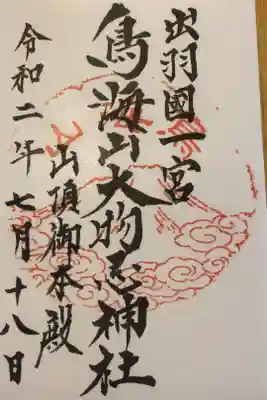 出羽國一宮
鳥海山大物忌神社
山頂御本殿
令和二年七月十八日